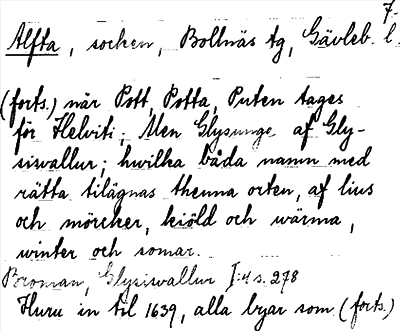 7.
Alfta, socken, Bollnäs tg, Gävleb. l.
(forts.) när Pott, Potta, Puten tages
för Helviti; Men Glysunge af Gly-
sisvallur; hwilka båda namn med
rätta tilägnas thenna orten, af lius
och mörcker, kiöld och wärma,
winter och somar.
Broman, Glysiswallur I:4 s. 278
Huru in til 1639, alla byar som (forts.)